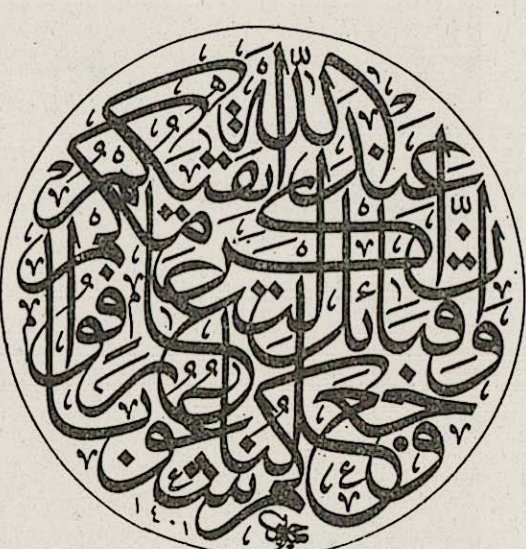 وَجَعَلْنَاكُمْ شُعُوبًا
وَقَبَائِلَ لِتَعَارَفُوا
اِنَّ اَكْرَمَكُمْ
عِنْدَ اللّٰهِ اَتْقٰيكُمْ
١٤٠١